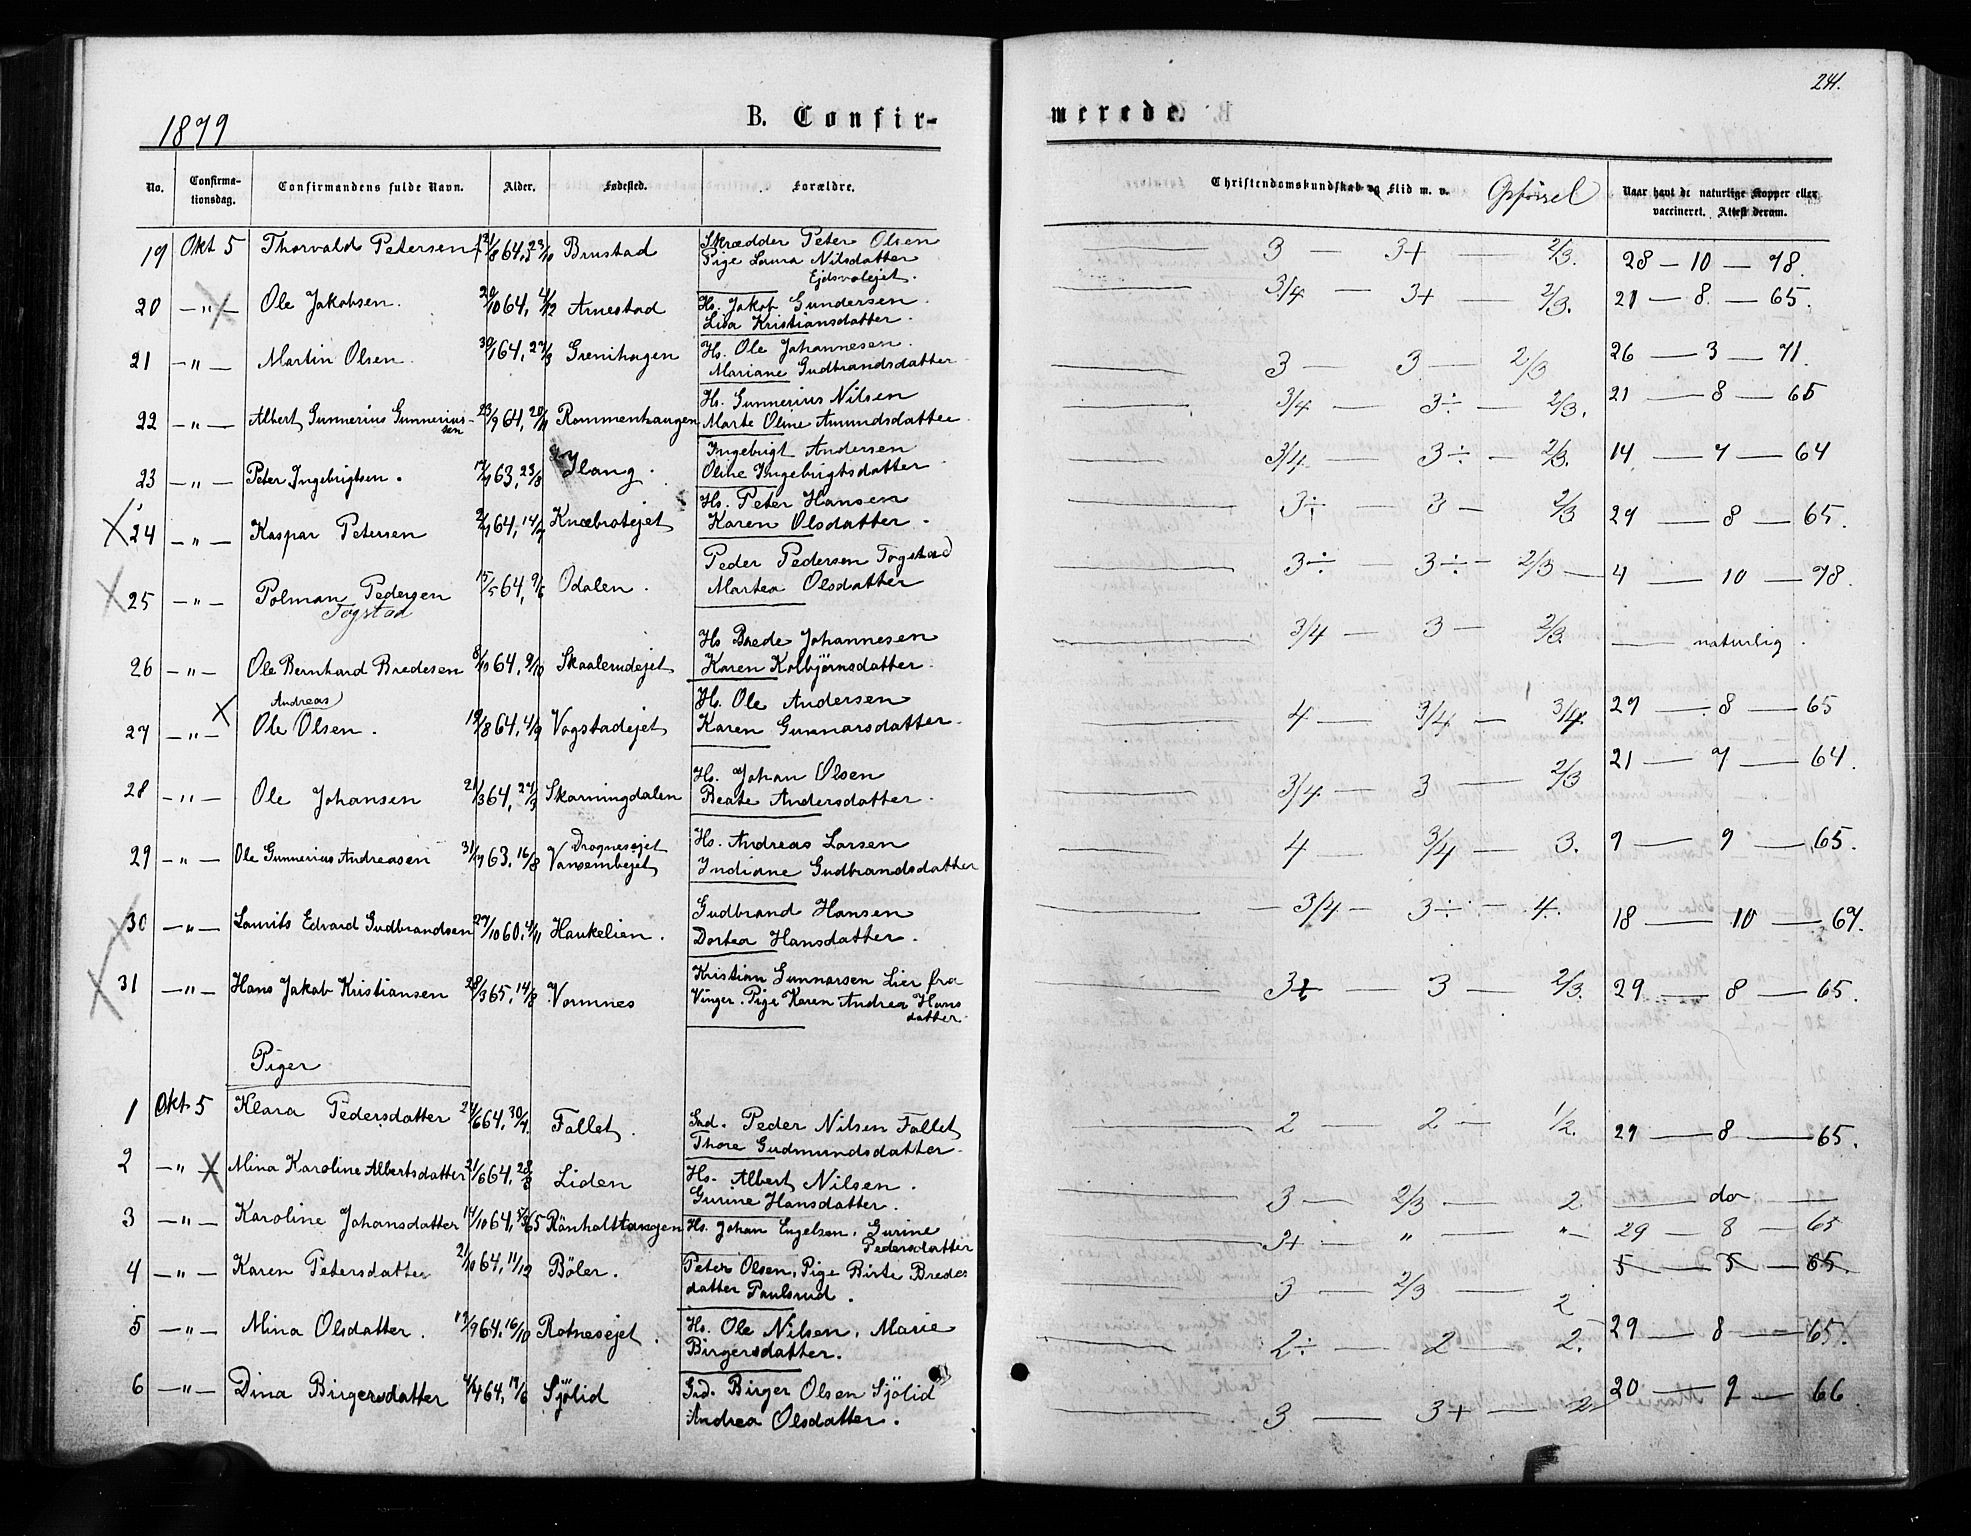 241.
1879
B. Confir-
merede.
No.
Confirma-
tionsdag.
Confirmandens fulde Navn.
Alder.
Fødested.
Forældre.
Christendomskundskab og Flid m. v. Opførsel
Naar havt de naturlige Kopper eller
vaccineret. Attest derom.
19 Okt 5 Thorvald Petersen 21/8 64, 23/10 Brustad Skrædder Peter Olsen 3 — 3+ — 2/3. 28 — 10 — 78.
Pige Laura Nilsdatter
Ejdsvolejet.
20 — " — Ole Jakobsen. 20/10 64, 4/12 Arnestad Hs. Jakob Gundersen. 3/4 — 3+ — 2/3. 21 — 8. — 65.
Lisa Kristiansdatter.
21 — " — Martin Olsen. 30/1 64, 27/3 Grenihagen Hs. Ole Johannesen. 3 — 3 — 2/3 26 — 3 — 71.
Mariane Gudbrandsdatter
22 — " — Albert Gunnerius Gunnerius- 23/9 64, 20/11 Rommenhaugen Hs. Gunnerius Nilsen 3/4 — 3÷ — 2/3. 21 — 8 — 65
sen Marte Oline Amundsdatter
23 — " — Peter Ingebrigtsen. 63, 23/8 Ilang. Ingebrigt Andersen 3/4 — 3÷ — 2/3. 14 — 7 — 64
Oline Ingebrigtsdatter
24 — " — Kaspar Petersen 64, 14/7 Knæbrotejet Hs. Peter Hansen 3÷ — 3 — 2/3 29 — 8 — 65.
Karen Olsdatter.
25 — " — Polman Pedersen 15/5 64, 9/6 Odalen. Peder Pedersen Togstad 3÷ — 3÷ — 2/3 — 4 — 10 — 78.
Togstad Martea Olsdatter
26 — " — Ole Bernhard Bredesen 8/10 64, 9/10 Skaalerudejet Hs Brede Johannesen 3/4 — 3 — 2/3. — naturlig.
Karen Kolbjørnsdatter.
Andreas
27 — " — Ole Olsen. 19/8 64, 4/9 Vogstadejet H. Ole Andersen 4 — 3/4 — 3/4. 29 — 8 — 65
Karen Gunnarsdatter.
28 — " — Ole Johansen 21/3 64, 27/3 Skarningdalen Hs. Johan Olsen 3/4 — 3 — 2/3 21 — 7 — 64.
Beate Andersdatter.
29 — " — Ole Gunnerius Andreasen 31/7 63. 16/8 Drognesejet Hs. Andreas Larsen 4 — 3/4 — 3. 9 — 9 — 65.
Vansembejet Indiane Gudbrandsdatter
30 — " — Laurits Edvard Gudbrandsen 27/10 60, 4/11 Haukelien. Gudbrand Hansen — 3/4 — 3÷ — 4. 18 — 10 — 67.
Dortea Hansdatter.
31 — " — Hans Jakob Kristiansen 28/3 65, 14/8 Vormnes Kristian Gunnarsen Lier fra 3+ — 3 — 2/3. 29 — 8 — 65.
Vinger. Pige Karen Andrea Hans
datter.
Piger
1 Okt 5 Klara Pedersdatter 24/6 64, 30/7. Fallet. Srd. Peder Nilsen Fallet 2 — 2 — 1/2. 29 — 8 — 65.
Thore Gudmundsdatter.
2 — " — Mina Karoline Albertsdatter 21/6 64, 28/8 Liden Hs. Albert Nilsen. 3 — 2/3 — 2. — do —
Gurine Hansdatter.
3 — " — Karoline Johansdatter 14/10 64, 5/3 65 Rånholttangen Hs. Johan Engelsen. Gurine 3+ — " — " — 29 — 8 — 65
Pedersdatter
4 — " — Karen Petersdatter 21/10 64, 11/12 Böler. Peter Olsen, Pige Birte Bredes 3 — 2/3 — 2 5 — 5 — 65.
datter Paulsrud.
5 — " — Mina Olsdatter. 13/9 64, 16/10 Rotnesejet. Hs. Ole Nilsen. Marie 2÷ — 2 — 2. 29 — 8 — 65.
Birgersdatter.
6 — " — Dina Birgersdatter 64, 19/6 Sjölid Srd. Birger Olsen Sjölid 3 — 3+ — 2 20 — 9 — 66
Andrea Olsdatter.